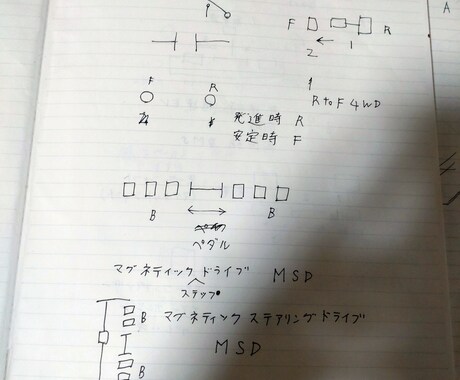 A
F R
2 1
F R
R to F 4WD
発進時 R
安定時 F
B B
ペダル
マグネティックドライブ MSD
ステップ
B マグネティックステアリングドライブ
MSD
B